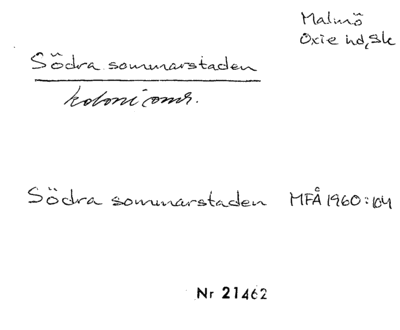 Malmö
Oxie hd, Sk
Södra sommarstaden
koloniomr.
Södra sommarstaden MFÅ 1960:104
Nr 21462